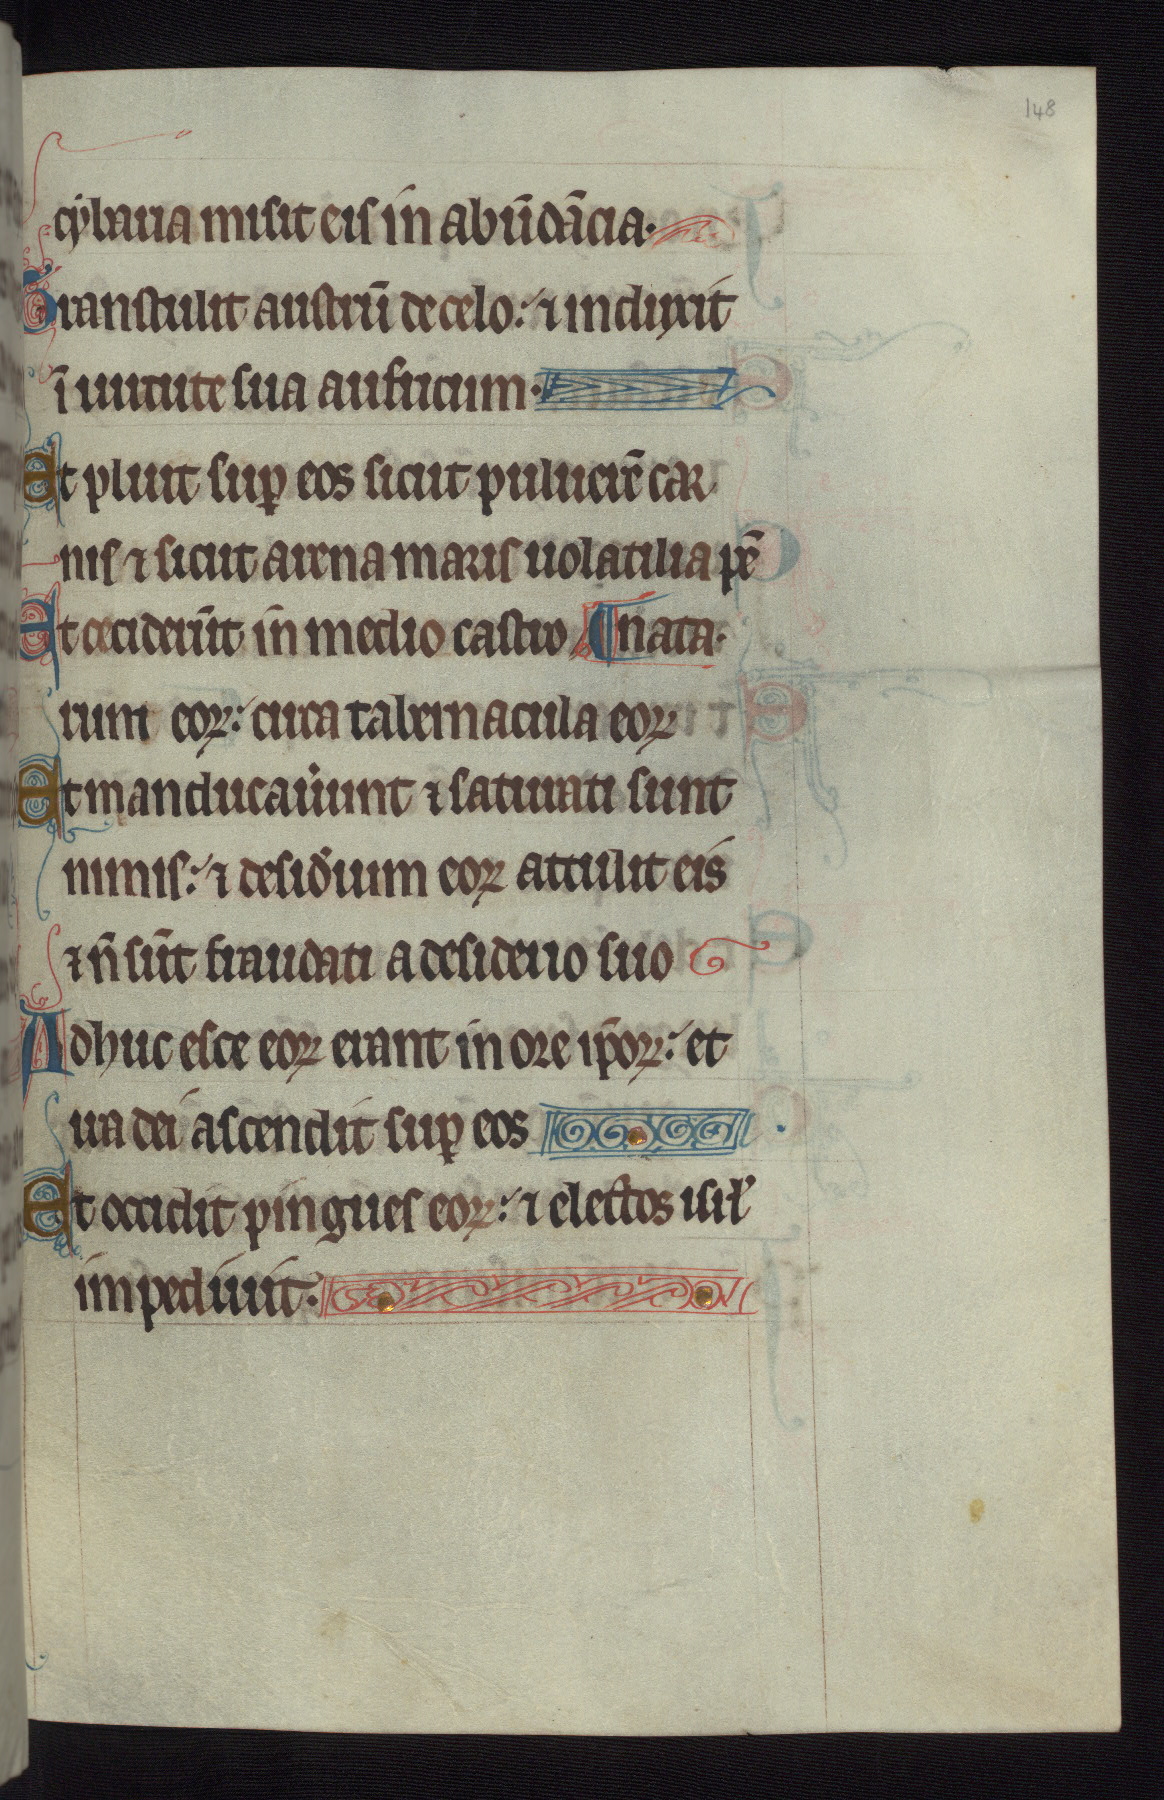 148
cẏbaria misit eis in abūdācia·
Transtulit austrū de celo: ⁊ induxit
ī uirtute sua aufricum·
Et pluit suꝑ eos sicut puluerē car
nis ⁊ sicut arena maris uolatilia pē
Et ceciderūt in medio castro ¶nata·
rum eoꝝ: circa tabernacula eoꝝ
Et manducauͥunt ⁊ saturati sunt
nimis: ⁊ desiđium eoꝝ attulit eis
⁊ n̄ sūt fraudati a desiderio suo
Adhuc esce eoꝝ erant in ore ip̄oꝝ: et
ira dei ascendit suꝑ eos
Et occidit pingues eoꝝ: ⁊ electos isrl̓
impediuit·